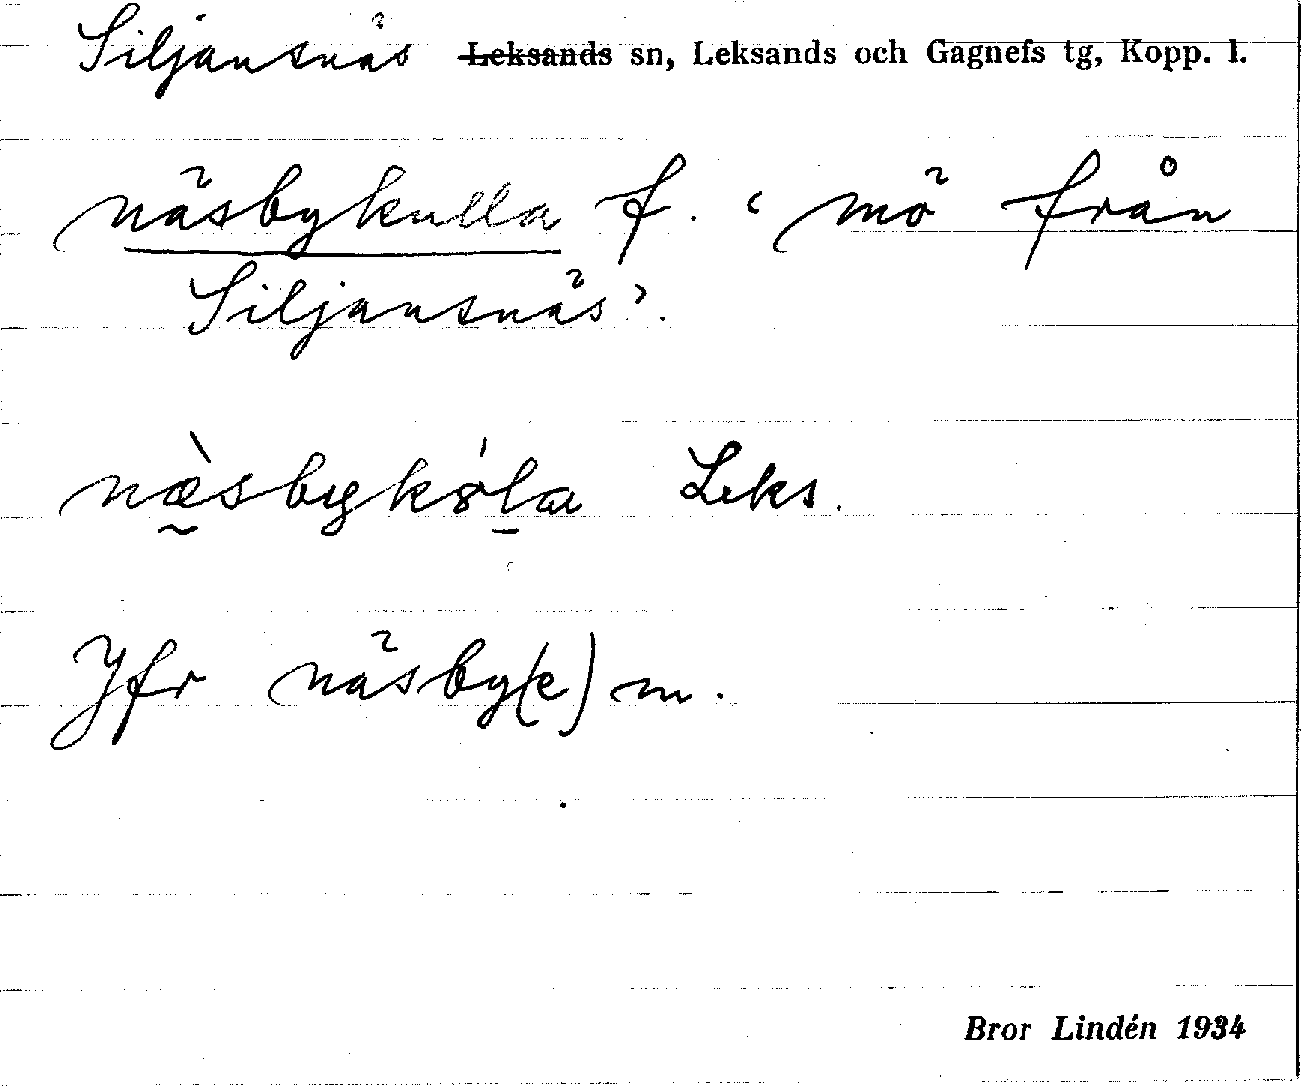 Siljansnäs Leksands sn, Leksands och Gagnefs tg, Kopp. l.
näsbykulla f. ‘mö från
Siljansnäs’.
næ̰̀sbykɷ́l̠a Leks.
Jfr näsby(e) m.
Bror Lindén 1934